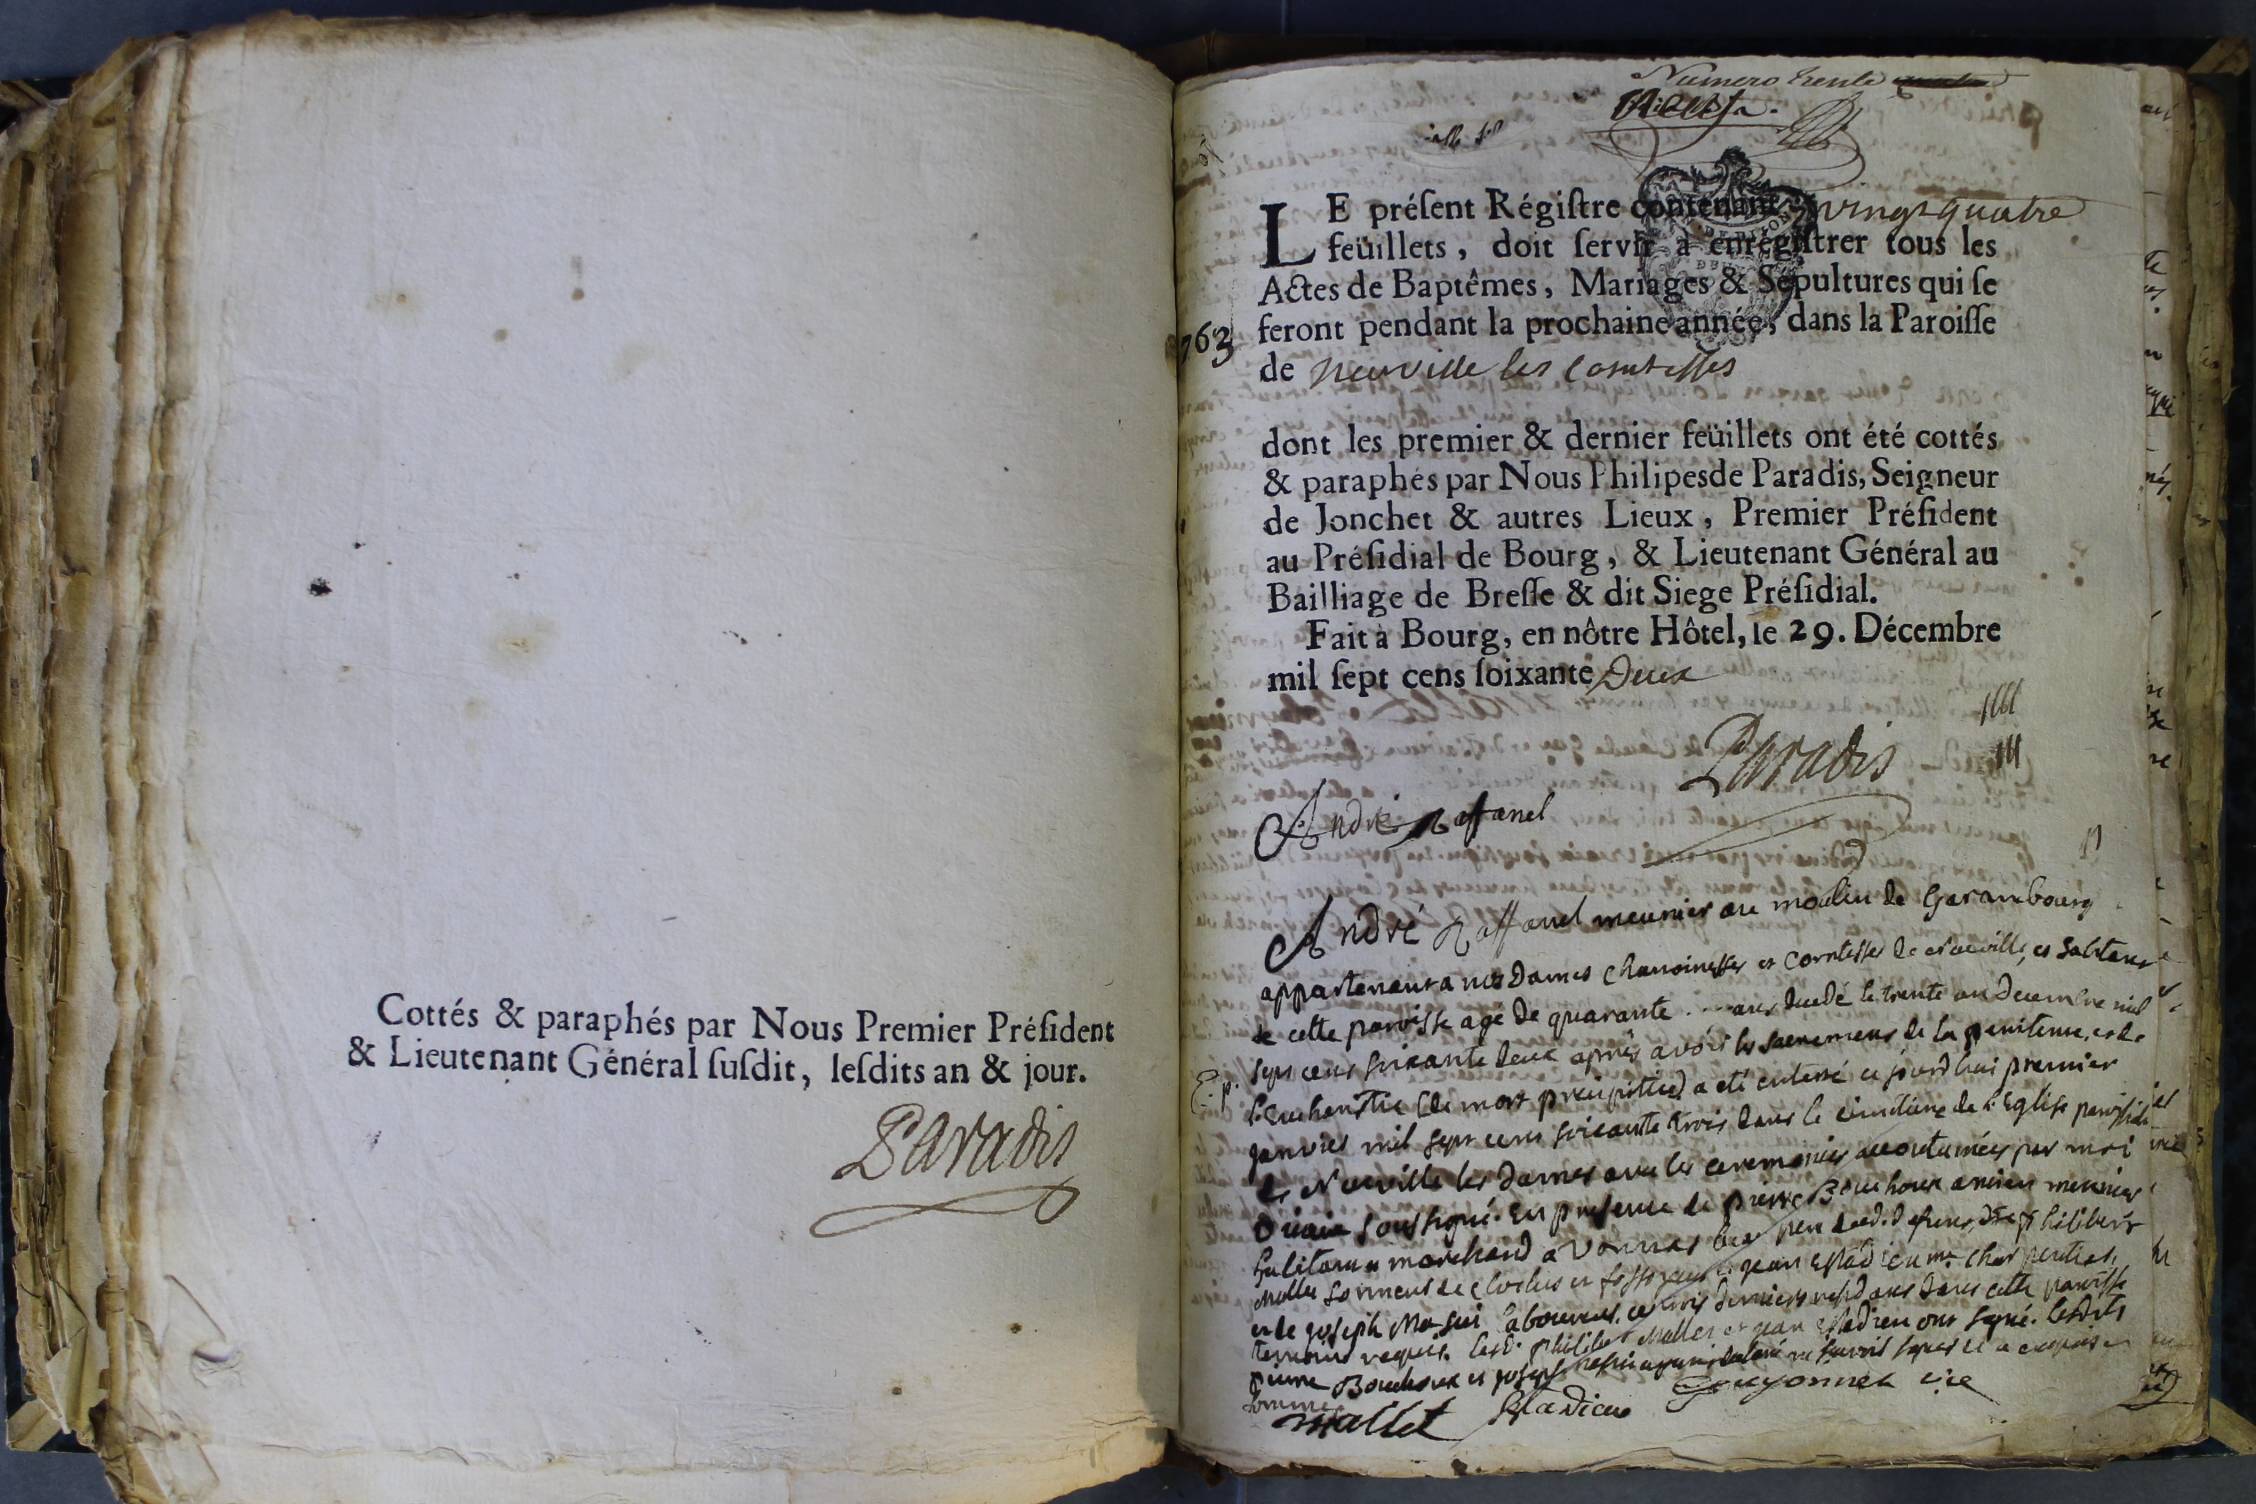 Cottés & paraphés par Nous Premier Préſident
& Lieutenant Général ſuſdit, leſdits an & jour.
Paradis
Numero trente
763
LE préſent Régiſtre contenant vingt quatre
feüillets, doit ſervir à enregiſtrer tous les
Actes de Baptêmes, Mariages & Sépultures qui ſe
feront pendant la prochaine année, dans la Paroiſſe
de neuville les comtesses
dont les premier & dernier feüillets ont été cottés
& paraphés par Nous Philipes de Paradis, Seigneur
de Jonchet & autres Lieux, Premier Préſident
au Préſidial de Bourg, & Lieutenant Général au
Bailliage de Breſſe & dit Siege Préſidial.
Fait à Bourg, en nôtre Hôtel, le 29. Décembre
mil ſept cens ſoixante Deux
Paradis
André Raffanel
André Raffanel meunier au moulin de Garambourg
appartenant a mes Dames chanoinesses et Comtesses de neuville, et habitant
de cette paroisse agé de quarante ans decedé le trente un decembre mil
sept cens soixante deux aprés avoir les sacremens de la penitence, et de
l'Eucharistie (de mort precipitée) a eté enterré ce jourdhui premier
janvier mil sept cens soixante trois dans le cimetiere de l'Eglise paroissiale
de Neuville les dames avec les ceremonies accoutumées par moi
vicaire soussigné. En presence de pierre Bouchoux ancien meunier
habitant marchand a Vonnas beau pere dud. defunt, de philibert
Mallet sonneur de cloches et fossoyeur jean Estadieu me. charpentier,
et de joseph laboureur, ces trois derniers residans dans cette paroisse
temoins requis. led. philibert Mallet et jean Estadieu ont signé. lesdits
pierre Bouchoux et joseph
sommés
mallet Estadieu Gouyonnet vic